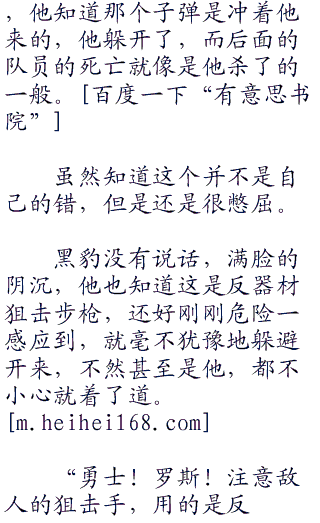 ，他知道那个子弹是冲着他
来的，他躲开了，而后面的
队员的死亡就像是他杀了的
一般。[百度一下“有意思书
院”]
虽然知道这个并不是自
己的错，但是还是很憋屈。
黑豹没有说话，满脸的
阴沉，他也知道这是反器材
狙击步枪，还好刚刚危险一
感应到，就毫不犹豫地躲避
开来，不然甚至是他，都不
小心就着了道。
[m.heihei168.com]
“勇士！罗斯！注意敌
人的狙击手，用的是反